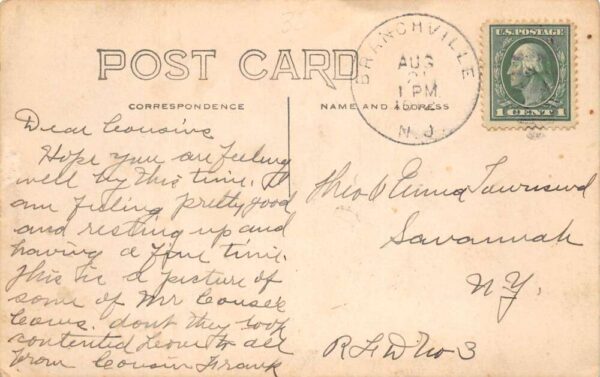 POST CARD
CORRESPONDENCE
NAME AND ADDRESS
BRANCHVILLE
AUG
21
1 PM
N.J.
U.S. POSTAGE
1 CENT 1
Dear Cousins
Hope you are feeling
well by this time. I
am feeling pretty good
and resting up and
having a fine time.
this is a picture of
some of Mr
Cows. dont they look
contented Love to all
from Cousin Frank
Emma Townsend
Savannah
N.Y.
R F D No 3